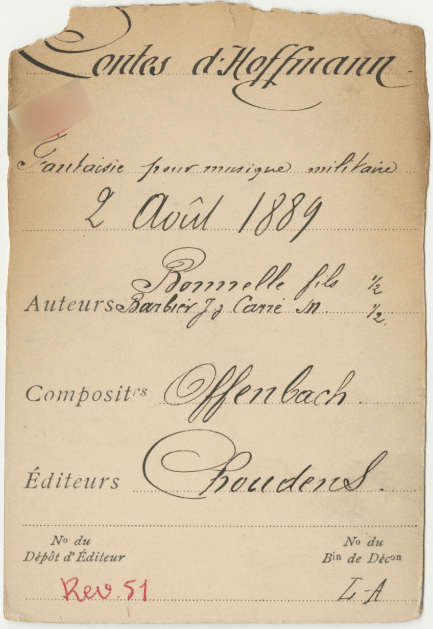 Contes d'Hoffmann
Fantaisie pour musique militaire
2 Août 1889
Bonnelle fils 1/2
Auteurs Barbier J; Carré M. 1/2.
Composit.rs Offenbach.
Éditeurs Choudens.
No du
Dépôt d'Éditeur
No du
Bin de Décon
Rev. 51
L-A